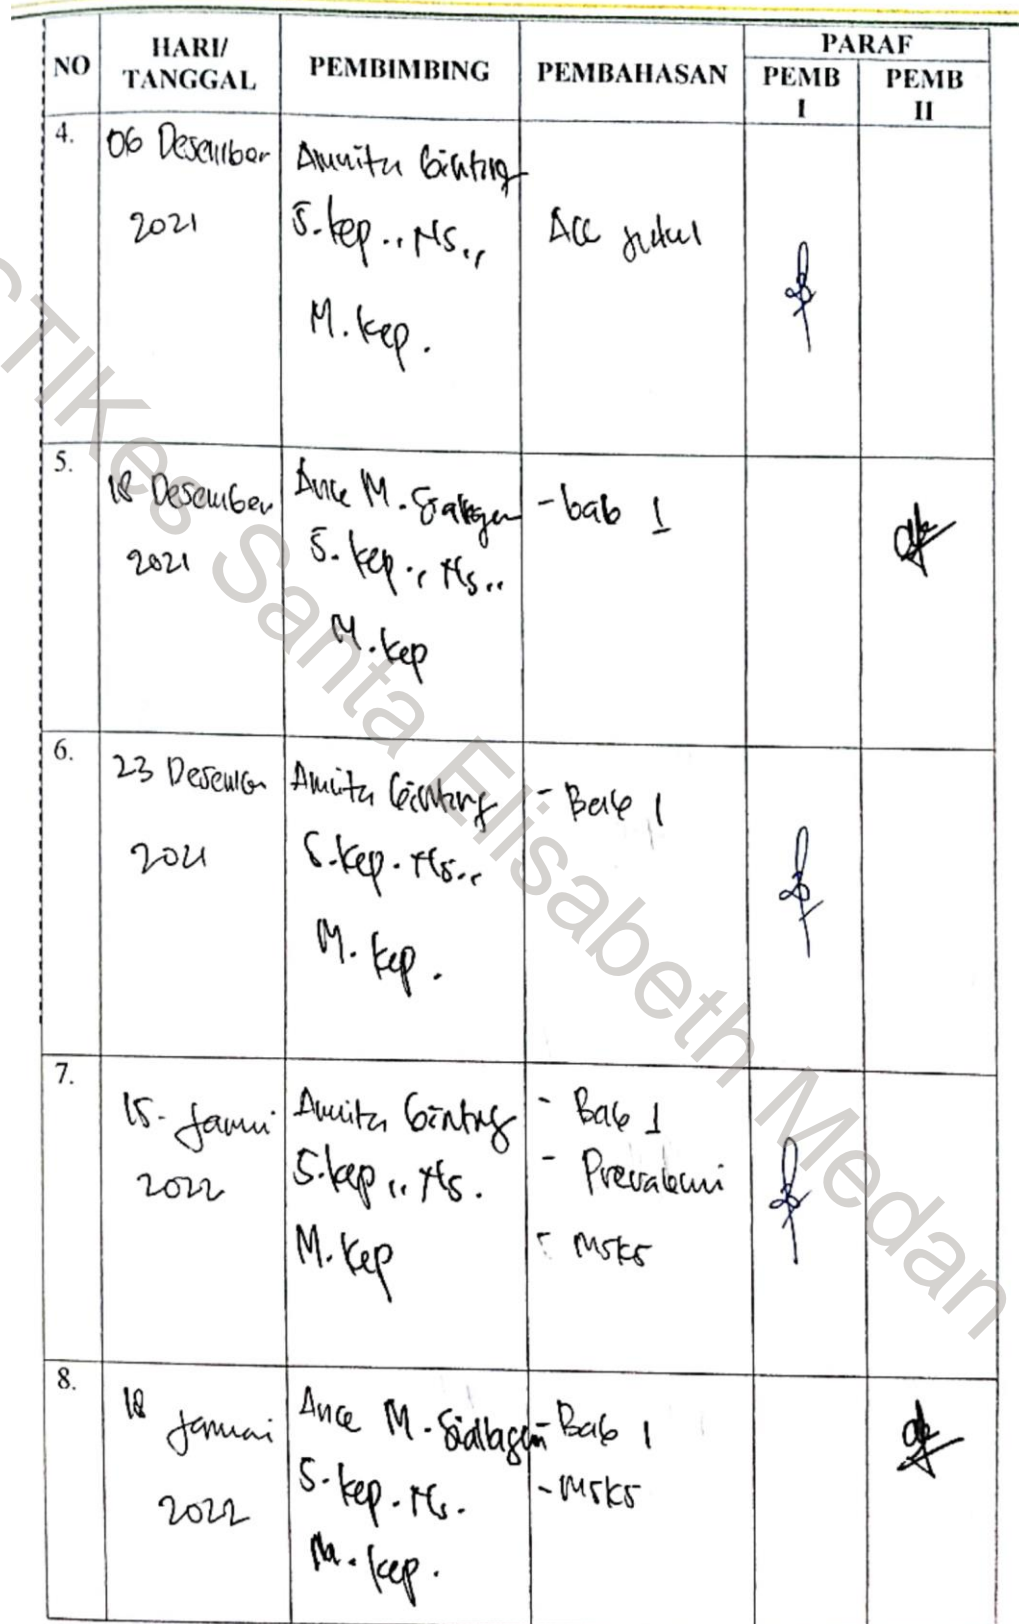 NO HARI/ TANGGAL PEMBIMBING PEMBAHASAN PARAF
PEMB I PEMB II
4. 06 Desember 2021
Amnita Ginting
S.kep.. Ns..
M.kep.
Acc judul
5. 18 Desember 2021
Ance M. Siallagan
S.kep., Ns..
M.kep
- bab 1
6. 23 Desember 2021
Amnita Ginting
S.kep. Ns..
M. kep.
- Bab 1
7. 15 - Januari 2022
Amnita Ginting
S.kep.. Ns.
M. Kep
- Bab 1
- Prevalensi
- MSKS
8. 18 Januari 2022
Ance M. Siallagan
S. kep. Ns.
M. kep.
- Bab 1
- MSKS
STIKes Santa Elisabeth Medan